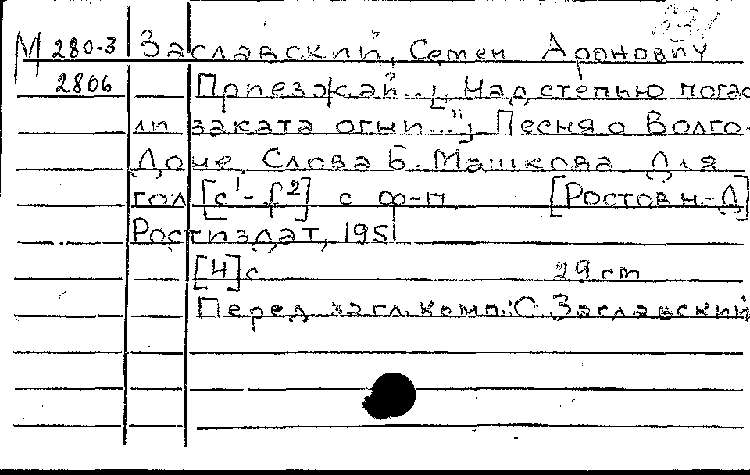 М 280-3 Заславский, Семен Аронович
2806 Приезжай... [„Над степью погас-
ли заката огни..."] Песня о Волго-
Доне. Слова Б. Машкова. Для
гол [c¹-f²] с ф-п [Ростов н.-Д]
Ростиздат, 1951
[4] с 29 cm
Перед загл. комп.: С. Заславский